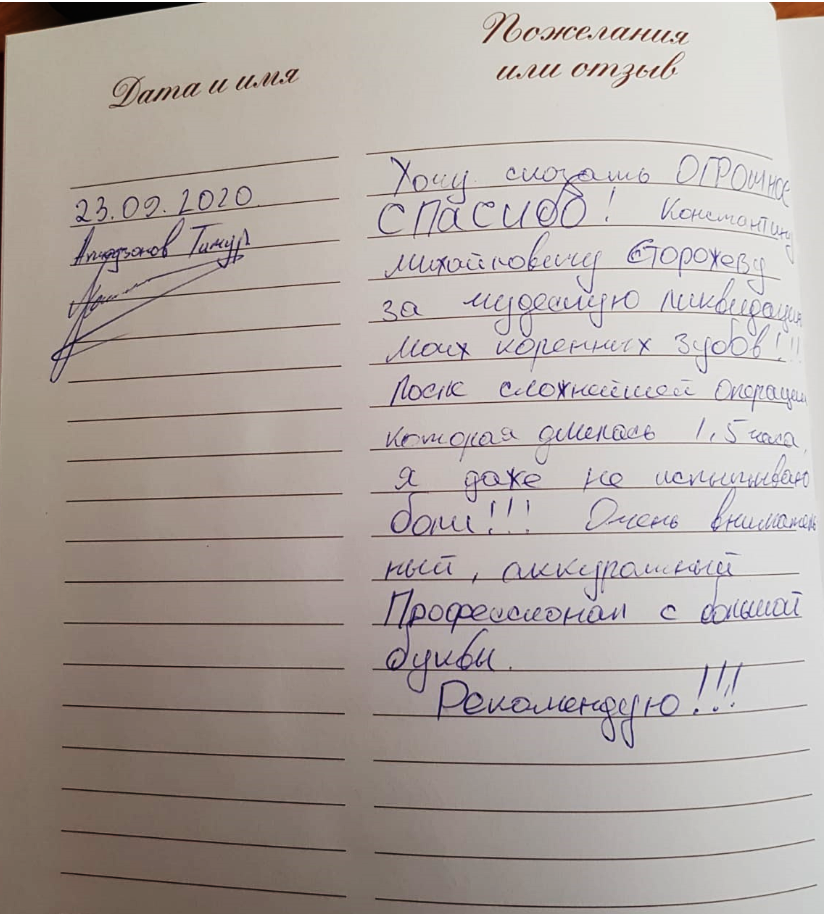 Дата и имя
Пожелания
или отзыв
23.09.2020
Тимур
Хочу сказать ОГРОМНОЕ
СПАСИБО! Константину
Михайловичу Сторожеву
за чудесную ликвидацию
моих коренных зубов!!!
После сложнейшей операции
которая длилась 1,5 часа,
я даже не испытываю
боли!!! Очень вниматель
ный, аккуратный
Профессионал с большой
буквы.
Рекомендую!!!